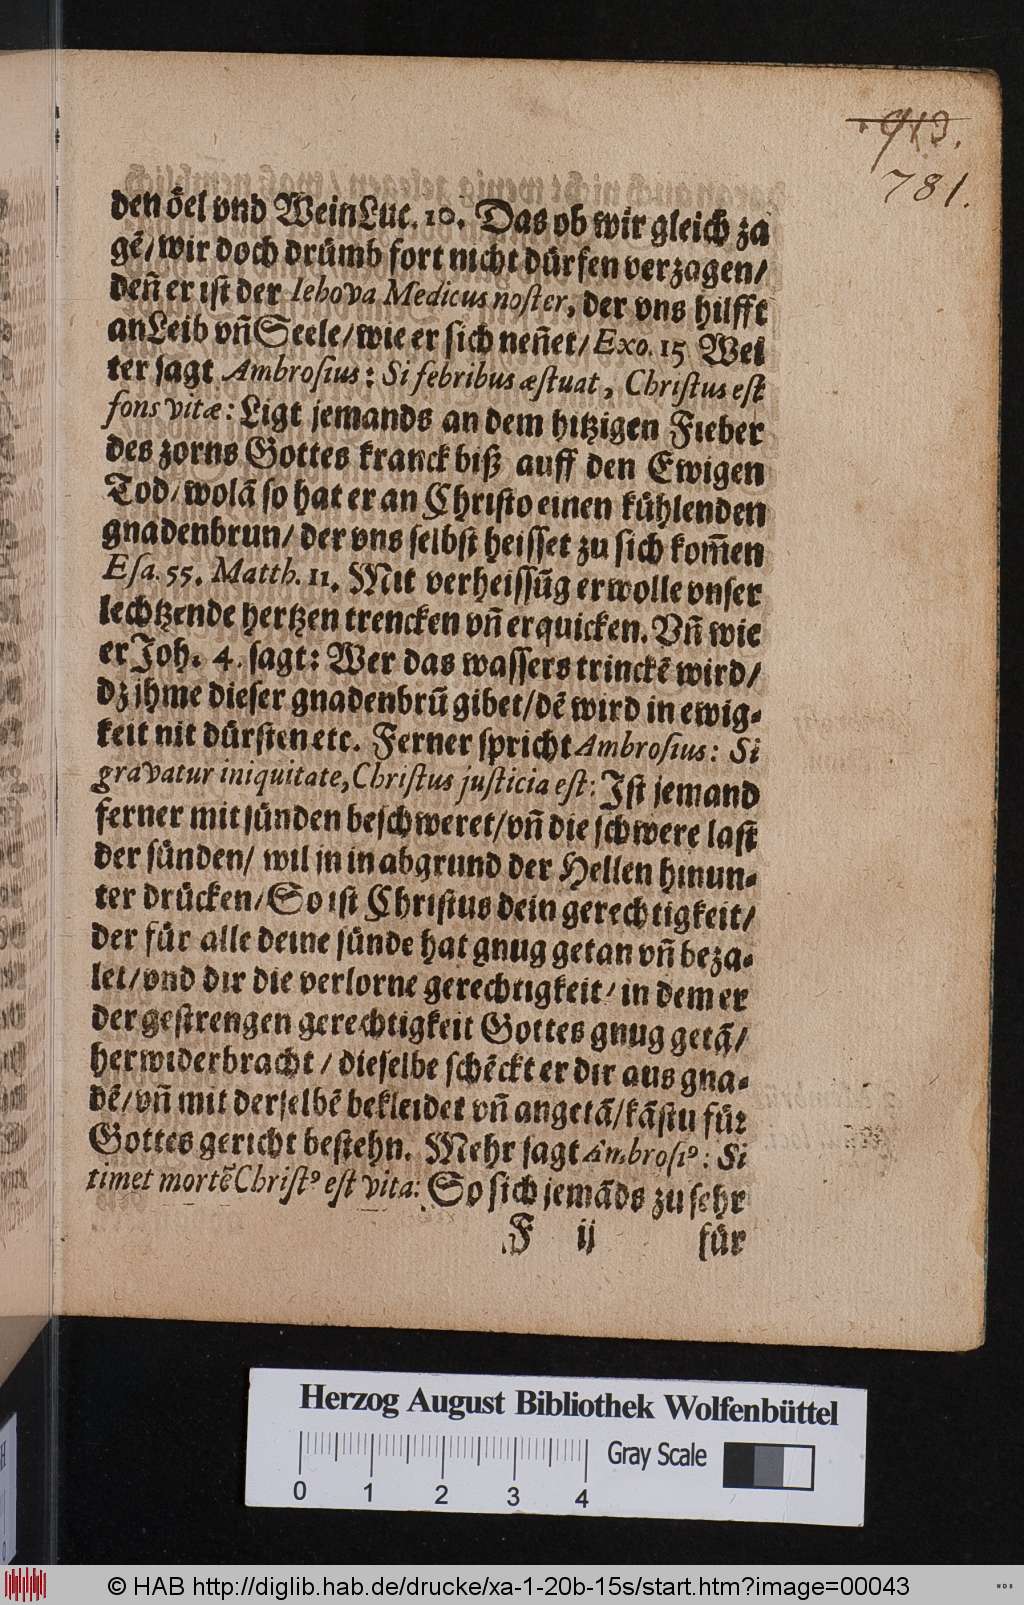 913.
781.
den öel vnd Wein Luc. 10. Das ob wir gleich za
gē/ wir doch drümb fort nicht dürfen verzagen/
deñ er ist der Iehova Medicus noster, der vns hilfft
an Leib vñ Seele/ wie er sich neñet/ Exo. 15 Wei
ter sagt Ambrosius: Si febribus æstuat, Christus est
fons vitæ: Ligt jemands an dem hitzigen Fieber
des zorns Gottes kranck biß auff den Ewigen
Tod/ wolā so hat er an Christo einen kühlenden
gnadenbrun/ der vns selbst heisset zu sich kom̃en
Esa. 55. Matth. 11. Mit verheissūg er wolle vnser
lechtzende hertzen trencken vñ erquicken. Vñ wie
er Joh. 4. sagt: Wer das wassers trinckē wird/
dz jhme dieser gnadenbrū gibet/ dē wird in ewig-
keit nit dürsten etc. Ferner spricht Ambrosius: Si
gravatur iniquitate, Christus justicia est: Ist jemand
ferner mit sünden beschweret/ vñ die schwere last
der sünden/ wil jn in abgrund der Hellen hinun-
ter drücken/ So ist Christus dein gerechtigkeit/
der für alle deine sünde hat gnug getan vñ beza-
let/ vnd dir die verlorne gerechtigkeit/ in dem er
der gestrengen gerechtigkeit Gottes gnug getā/
herwiderbracht/ dieselbe schēckt er dir aus gna-
dē/ vñ mit derselbē bekleidet vñ angetā/ kāstu für
Gottes gericht bestehn. Mehr sagt Ambrosiꝰ: Si
timet mortē Christꝰ est vita: So sich jemāds zu sehr
F ii für
Herzog August Bibliothek Wolfenbüttel
Gray Scale
0 1 2 3 4
© HAB http://diglib.hab.de/drucke/xa-1-20b-15s/start.htm?image=00043